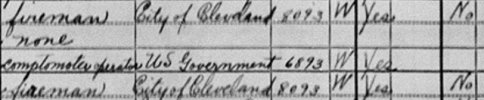 fireman City of Cleveland 8093 W Yes No
none
comptometer operator US Government 6893 W Yes
fireman City of Cleveland 8093 W Yes No